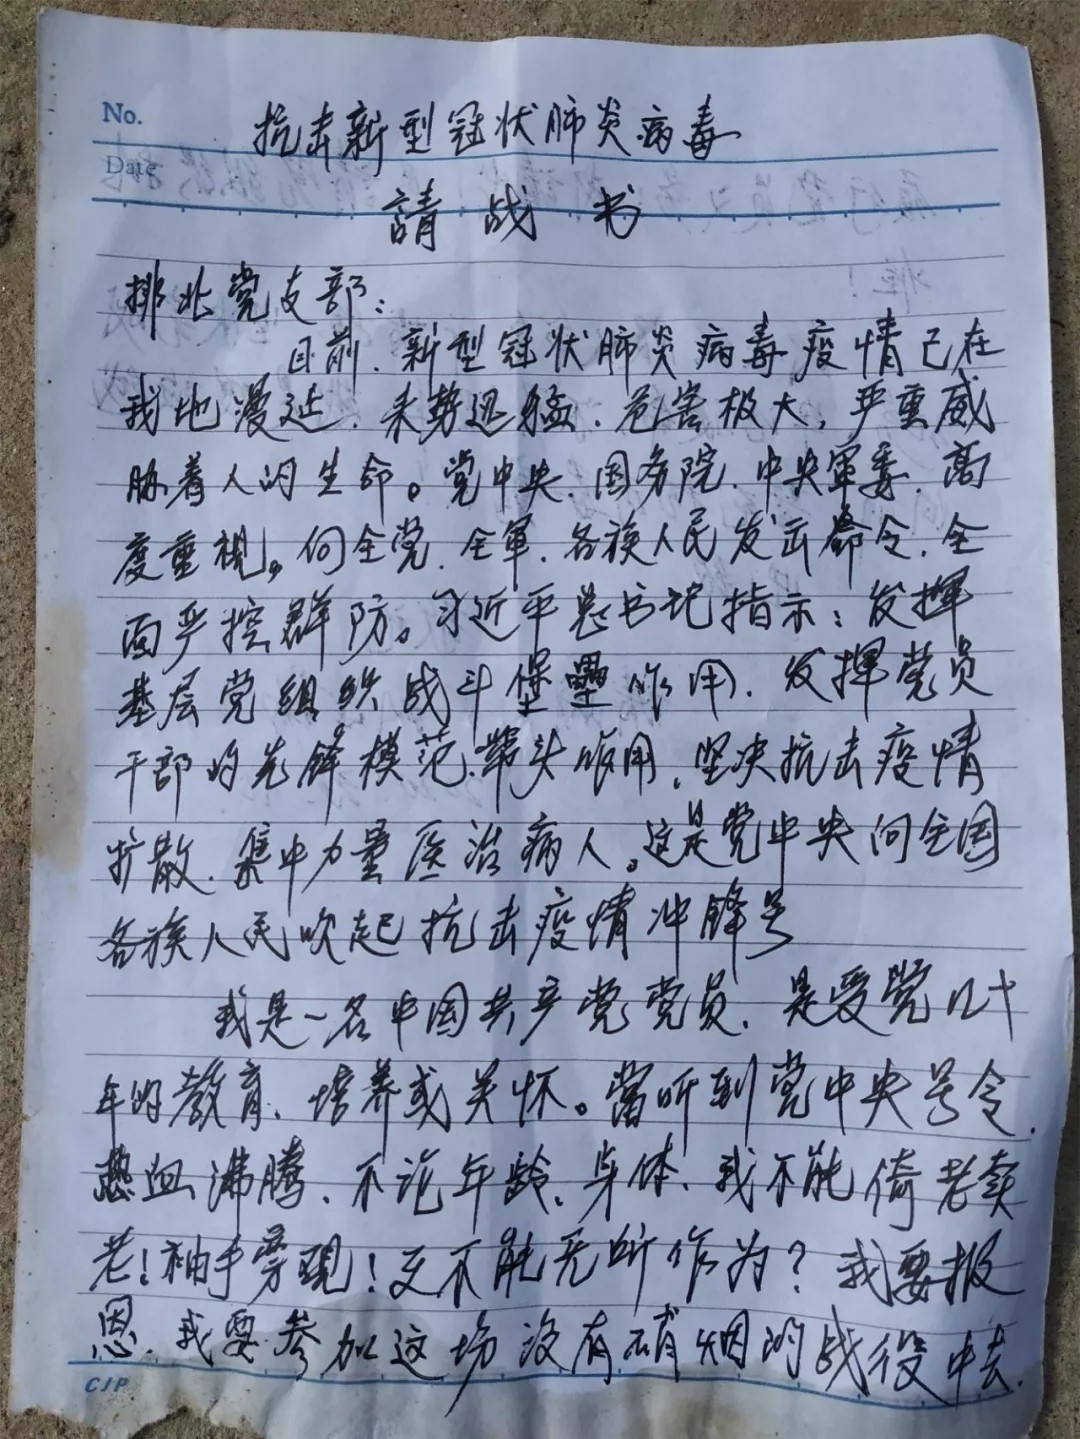 No.
抗击新型冠状肺炎病毒
Date
請战书
排北党支部：
目前、新型冠状肺炎病毒疫情已在
我地漫延、来势迅猛、危害极大，严重威
胁着人的生命。党中央、国务院、中央軍委、高
度重視。向全党、全軍、各族人民发出命令、全
面严控群防。习近平总书记指示：发揮
基层党组织战斗堡壘作用、发揮党员
干部的先锋模范、带头作用、坚决抗击疫情
扩散、集中力量医治病人。这是党中央向全国
各族人民吹起抗击疫情冲锋号
我是一名中国共产党党员、是受党几十
年的教育、培养或关怀。當听到党中央号令、
热血沸腾、不论年龄、身体、我不能倚老卖
老！袖手旁观！又不能无所作为？我要报
恩、我要参加这场没有硝烟的战役中去、
CJP